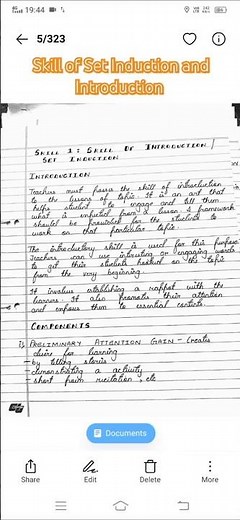 19:44
5/323
Skill of Set Induction and
Introduction
SKILL 1: SKILL OF INTRODUCTION /
SET INDUCTION
INTRODUCTION
Teachers must possess the skill of introduction
to the lessons of topic. It is an art that
helps student to engage and tell them
what is expected from a lesson. A framework
should be provided by the students to
work on that particular topic.
The introductory skill is used for this purpose
Teachers can use interesting or engaging words
to get their students hooked on the topic
from the very beginning.
It involves establishing a rapport with the
learners. It also promotes their attention
and exposes them to essential contents.
COMPONENTS
i) PRELIMINARY ATTENTION GAIN - Create
desire for learning
- by telling stories
- demonstrating a activity
- short poem recitation, etc
Documents
Share Edit Delete More